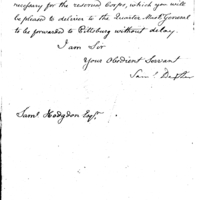 necessary for the reserved Corps, which you will
be pleased to deliver to the Quarter Mast. General
to be forwarded to Pittsburg without delay.
I am Sir
Your Obedient Servant
Sam. Dexter
Saml. Hodgdon Esqr.